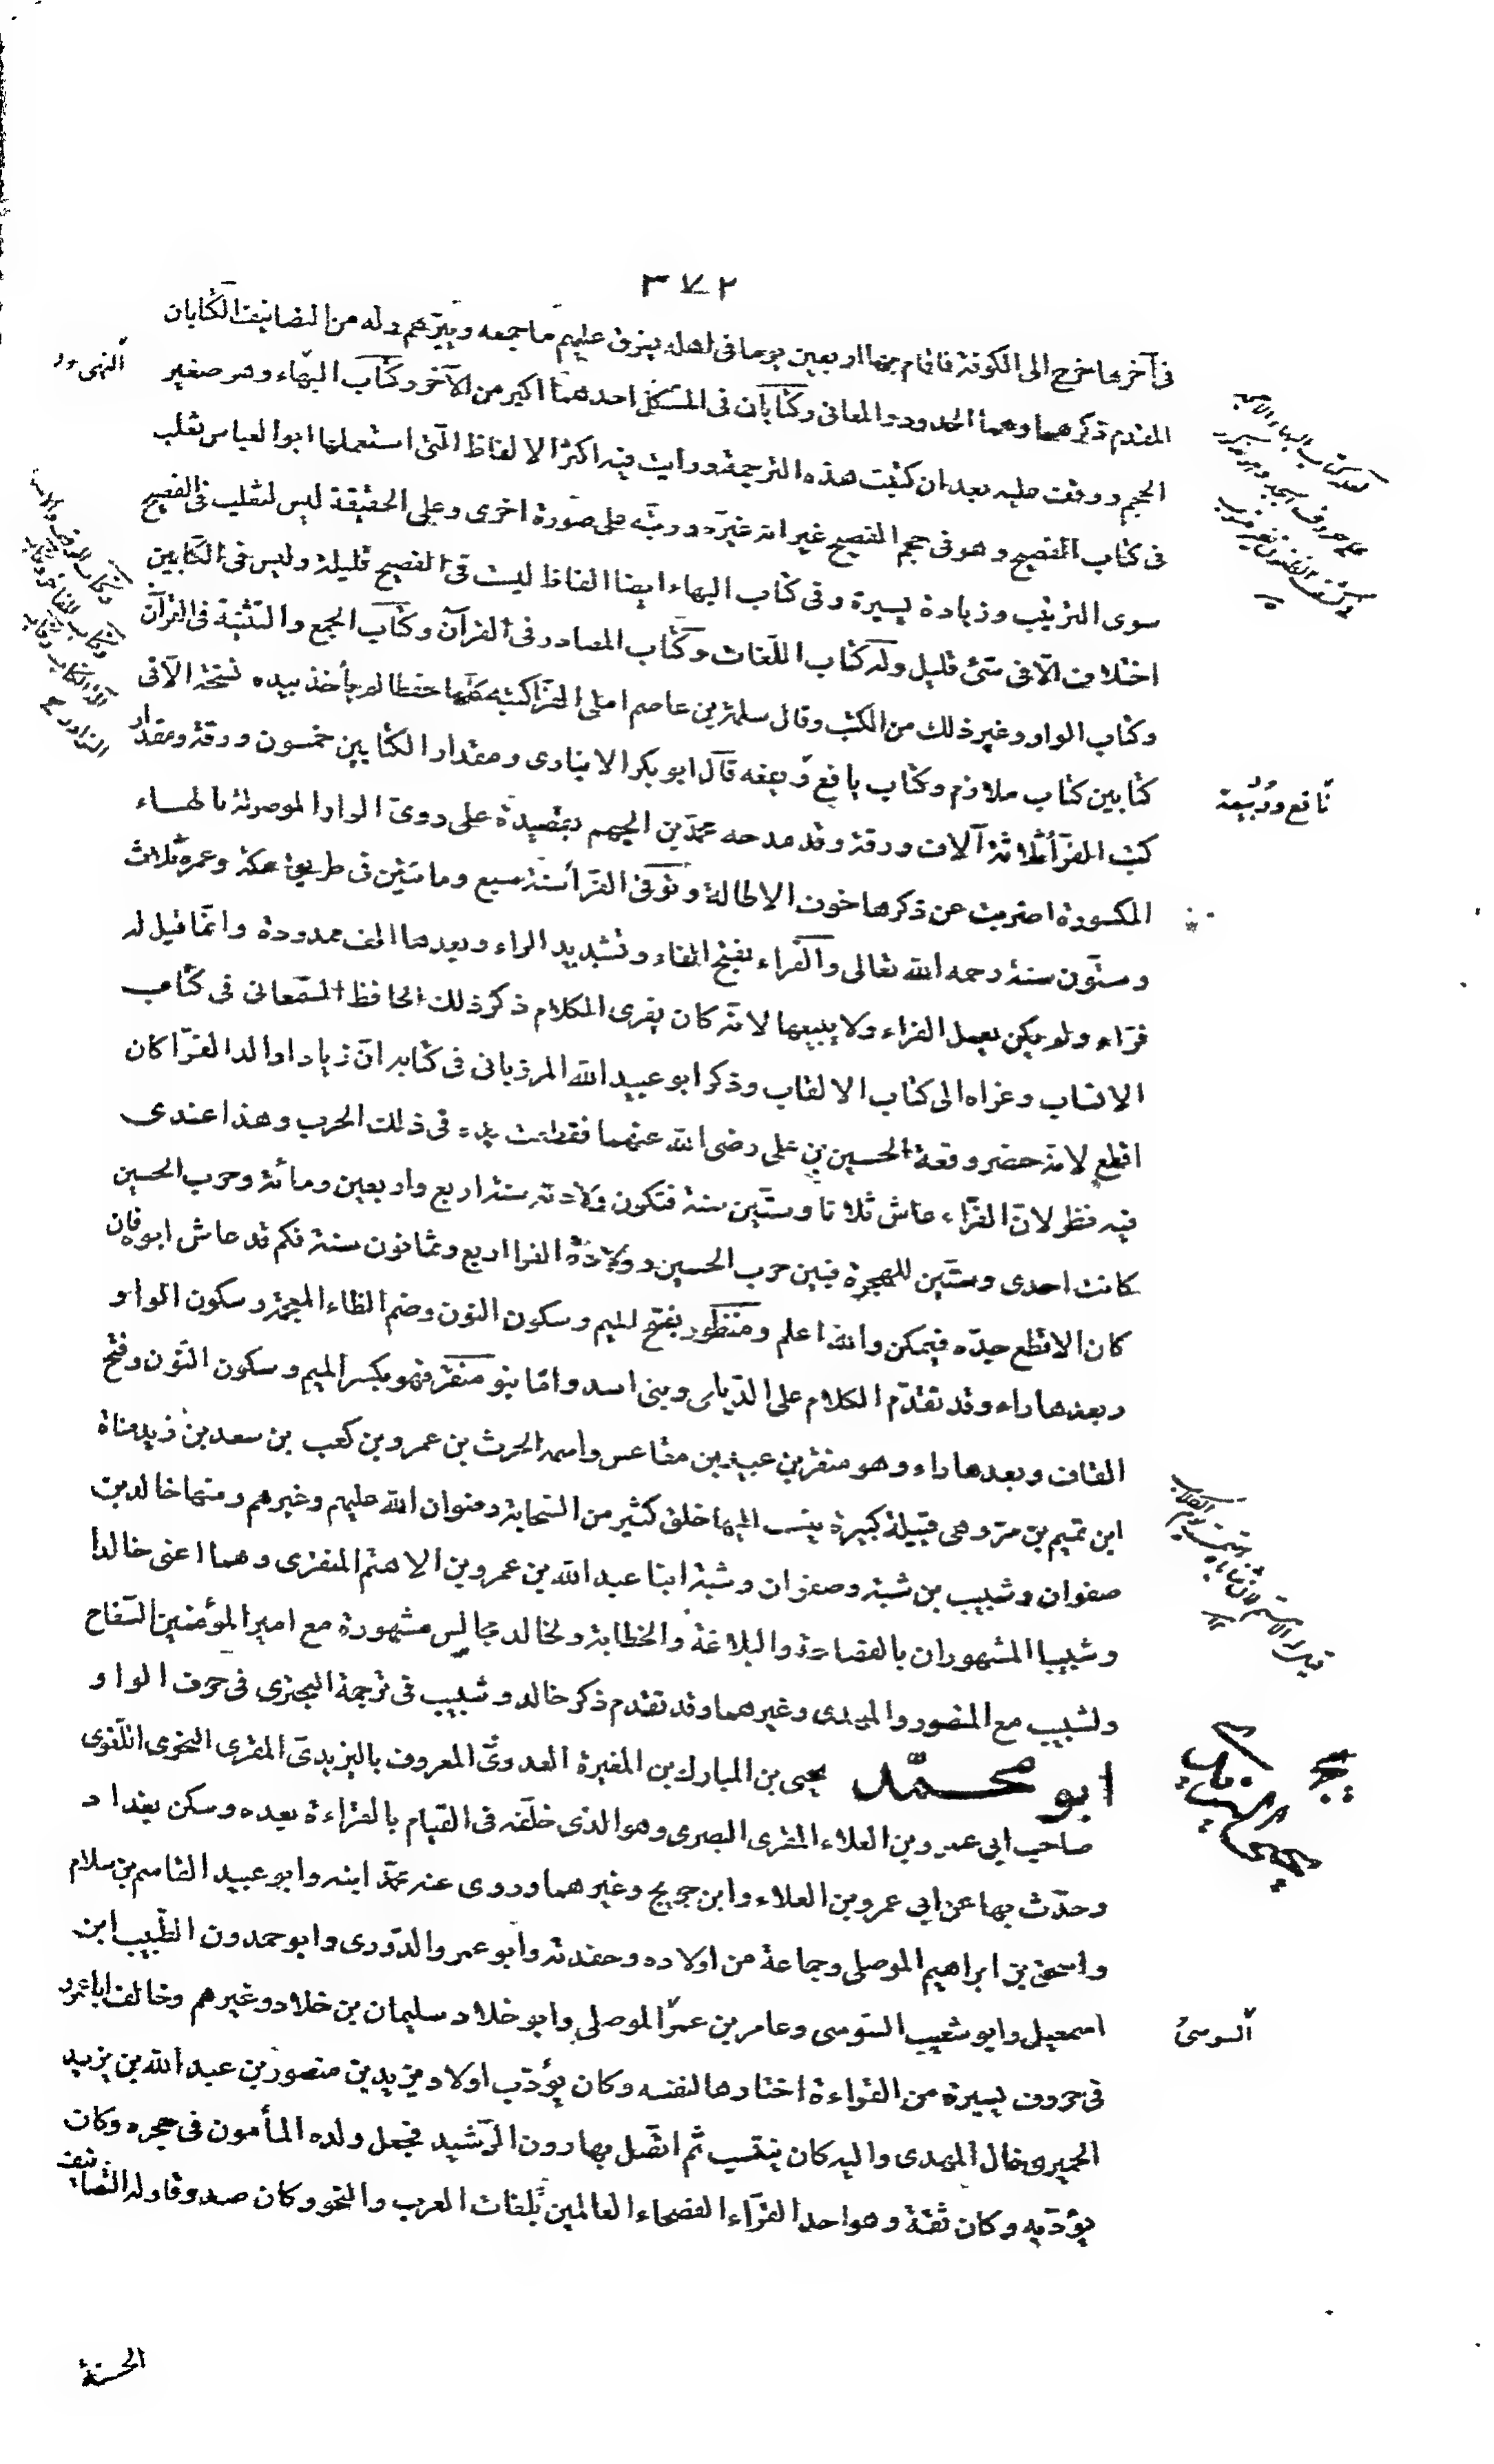 ٣٧٢
فى آخرها خرج الى الكوفة فاقام بها اربعين يوما فى اهله يفرق عليهم ما جمعه ويبرّهم وله من التصانيف الكتابان
المقدم ذكرهما وهما الحدود والمعانى وكتابان فى المشكل احدهما اكبر من الآخر وكتاب البهاء وهو صغير
الحجم ووقفت عليه بعد ان كتبت هذه الترجمة ورايت فيه اكثر الالفاظ التى استعملها ابو العباس ثعلب
فى كتاب الفصيح وهو فى حجم الفصيح غير انه غيّره ورتبه على صورة اخرى وعلى الحقيقة ليس لثعلب فى الفصيح
سوى الترتيب وزيادة يسيرة وفى كتاب البهاء ايضا الفاظ ليست فى الفصيح قليلة وليس فى الكتابين
اختلاف الّا فى شئ قليل وله كتاب اللّغات وكتاب المصادر فى القرآن وكتاب الجمع والتثنية فى القرآن
وكتاب الواو وغير ذلك من الكتب وقال سلمة بن عاصم املى الفرّا كتبه كلّها حفظا لم يأخذ بيده نسخة الّا فى
كتابين كتاب ملازم وكتاب يافع ويفعه قال ابو بكر الانبارى ومقدار الكتابين خمسون ورقة ومقدار
كتب الفرّا ثلاثة آلاف ورقة وقد مدحه محمّد بن الجهم بقصيدة على روىّ الواو الموصولة بالهاء
المكسورة اضربت عن ذكرها خوف الاطالة وتوفى الفرّا سنة سبع ومائتين فى طريق مكة وعمره ثلاث
وستّون سنة رحمه الله تعالى والفراء بفتح الفاء وتشديد الراء وبعدها الف ممدودة وانّما قيل له
فرّاء ولم يكن يعمل الفراء ولا يبيعها لانّه كان يفرى الكلام ذكر ذلك الحافظ السّمعانى فى كتاب
الانساب وعزاه الى كتاب الالقاب وذكر ابو عبيد الله المرزبانى فى كتابه انّ زيادا والد الفرّا كان
اقطع لانه حضر وقعة الحسين بن على رضى الله عنهما فقطعت يده فى ذلك الحرب وهذا عندى
فيه نظر لانّ الفرّاء عاش ثلاثا وستّين سنة فتكون ولادته سنة اربع واربعين ومائة وحرب الحسين
كانت احدى وستّين للهجرة فبين حرب الحسين وولادة الفرا اربع وثمانون سنة فكم قد عاش ابوه فان
كان الاقطع جدّه فيمكن والله اعلم ومنظور بفتح الميم وسكون النون وضم الظاء المعجمة وسكون الواو
وبعدها راء وقد تقدّم الكلام على الدّيلمى وبنى اسد وامّا بنو منقر فهو بكسر الميم وسكون النّون وفتح
القاف وبعدها راء وهو منقر بن عبيد بن مقاعس واسمه الحرث بن عمرو بن كعب بن سعد بن زيد مناة
ابن تميم بن مرّ وهى قبيلة كبيرة ينسب اليها خلق كثير من الصّحابة رضوان الله عليهم وغيرهم ومنها خالد بن
صفوان وشبيب بن شبة وصفوان وشبة ابنا عبد الله بن عمرو بن الاهتم المنقرى وهما اعنى خالدا
وشبيبا المشهوران بالفصاحة والبلاغة والخطابة ولخالد مجالس مشهورة مع امير المؤمنين السّفاح
ولشبيب مع المنصور والمهدى وغيرهما وقد تقدم ذكر خالد وشبيب فى ترجمة البحترى فى حرف الواو
ابو محمّد يحيى بن المبارك بن المغيرة العدوىّ المعروف باليزيدىّ المقرى النحوى اللّغوى
صاحب ابى عمرو بن العلاء المقرى البصرى وهو الذى خلفه فى القيام بالقراءة بعده وسكن بغداد
وحدّث بها عن ابى عمرو بن العلاء وابن جريج وغيرهما وروى عنه محمّد ابنه وابو عبيد القاسم بن سلام
واسحق بن ابراهيم الموصلى وجماعة من اولاده وحفدته وابو عمر والدّورى وابو حمدون الطّبيب ابن
اسمعيل وابو شعيب السّوسى وعامر بن عمر الموصلى وابو خلاد سليمان بن خلاد وغيرهم وخالف ابا عمرو
فى حروف يسيرة من القراءة اختارها لنفسه وكان يؤدّب اولاد يزيد بن منصور بن عبد الله بن يزيد
الحميرى خال المهدى واليه كان ينتسب ثم اتّصل بهارون الرّشيد فجعل ولده المأمون فى حجره وكان
يؤدّبه وكان ثقة وهو احد القرّاء الفصحاء العالمين بلغات العرب والنحو وكان صدوقا وله التّصانيف
الحسنة
يافع ويفعة
السوسىّ